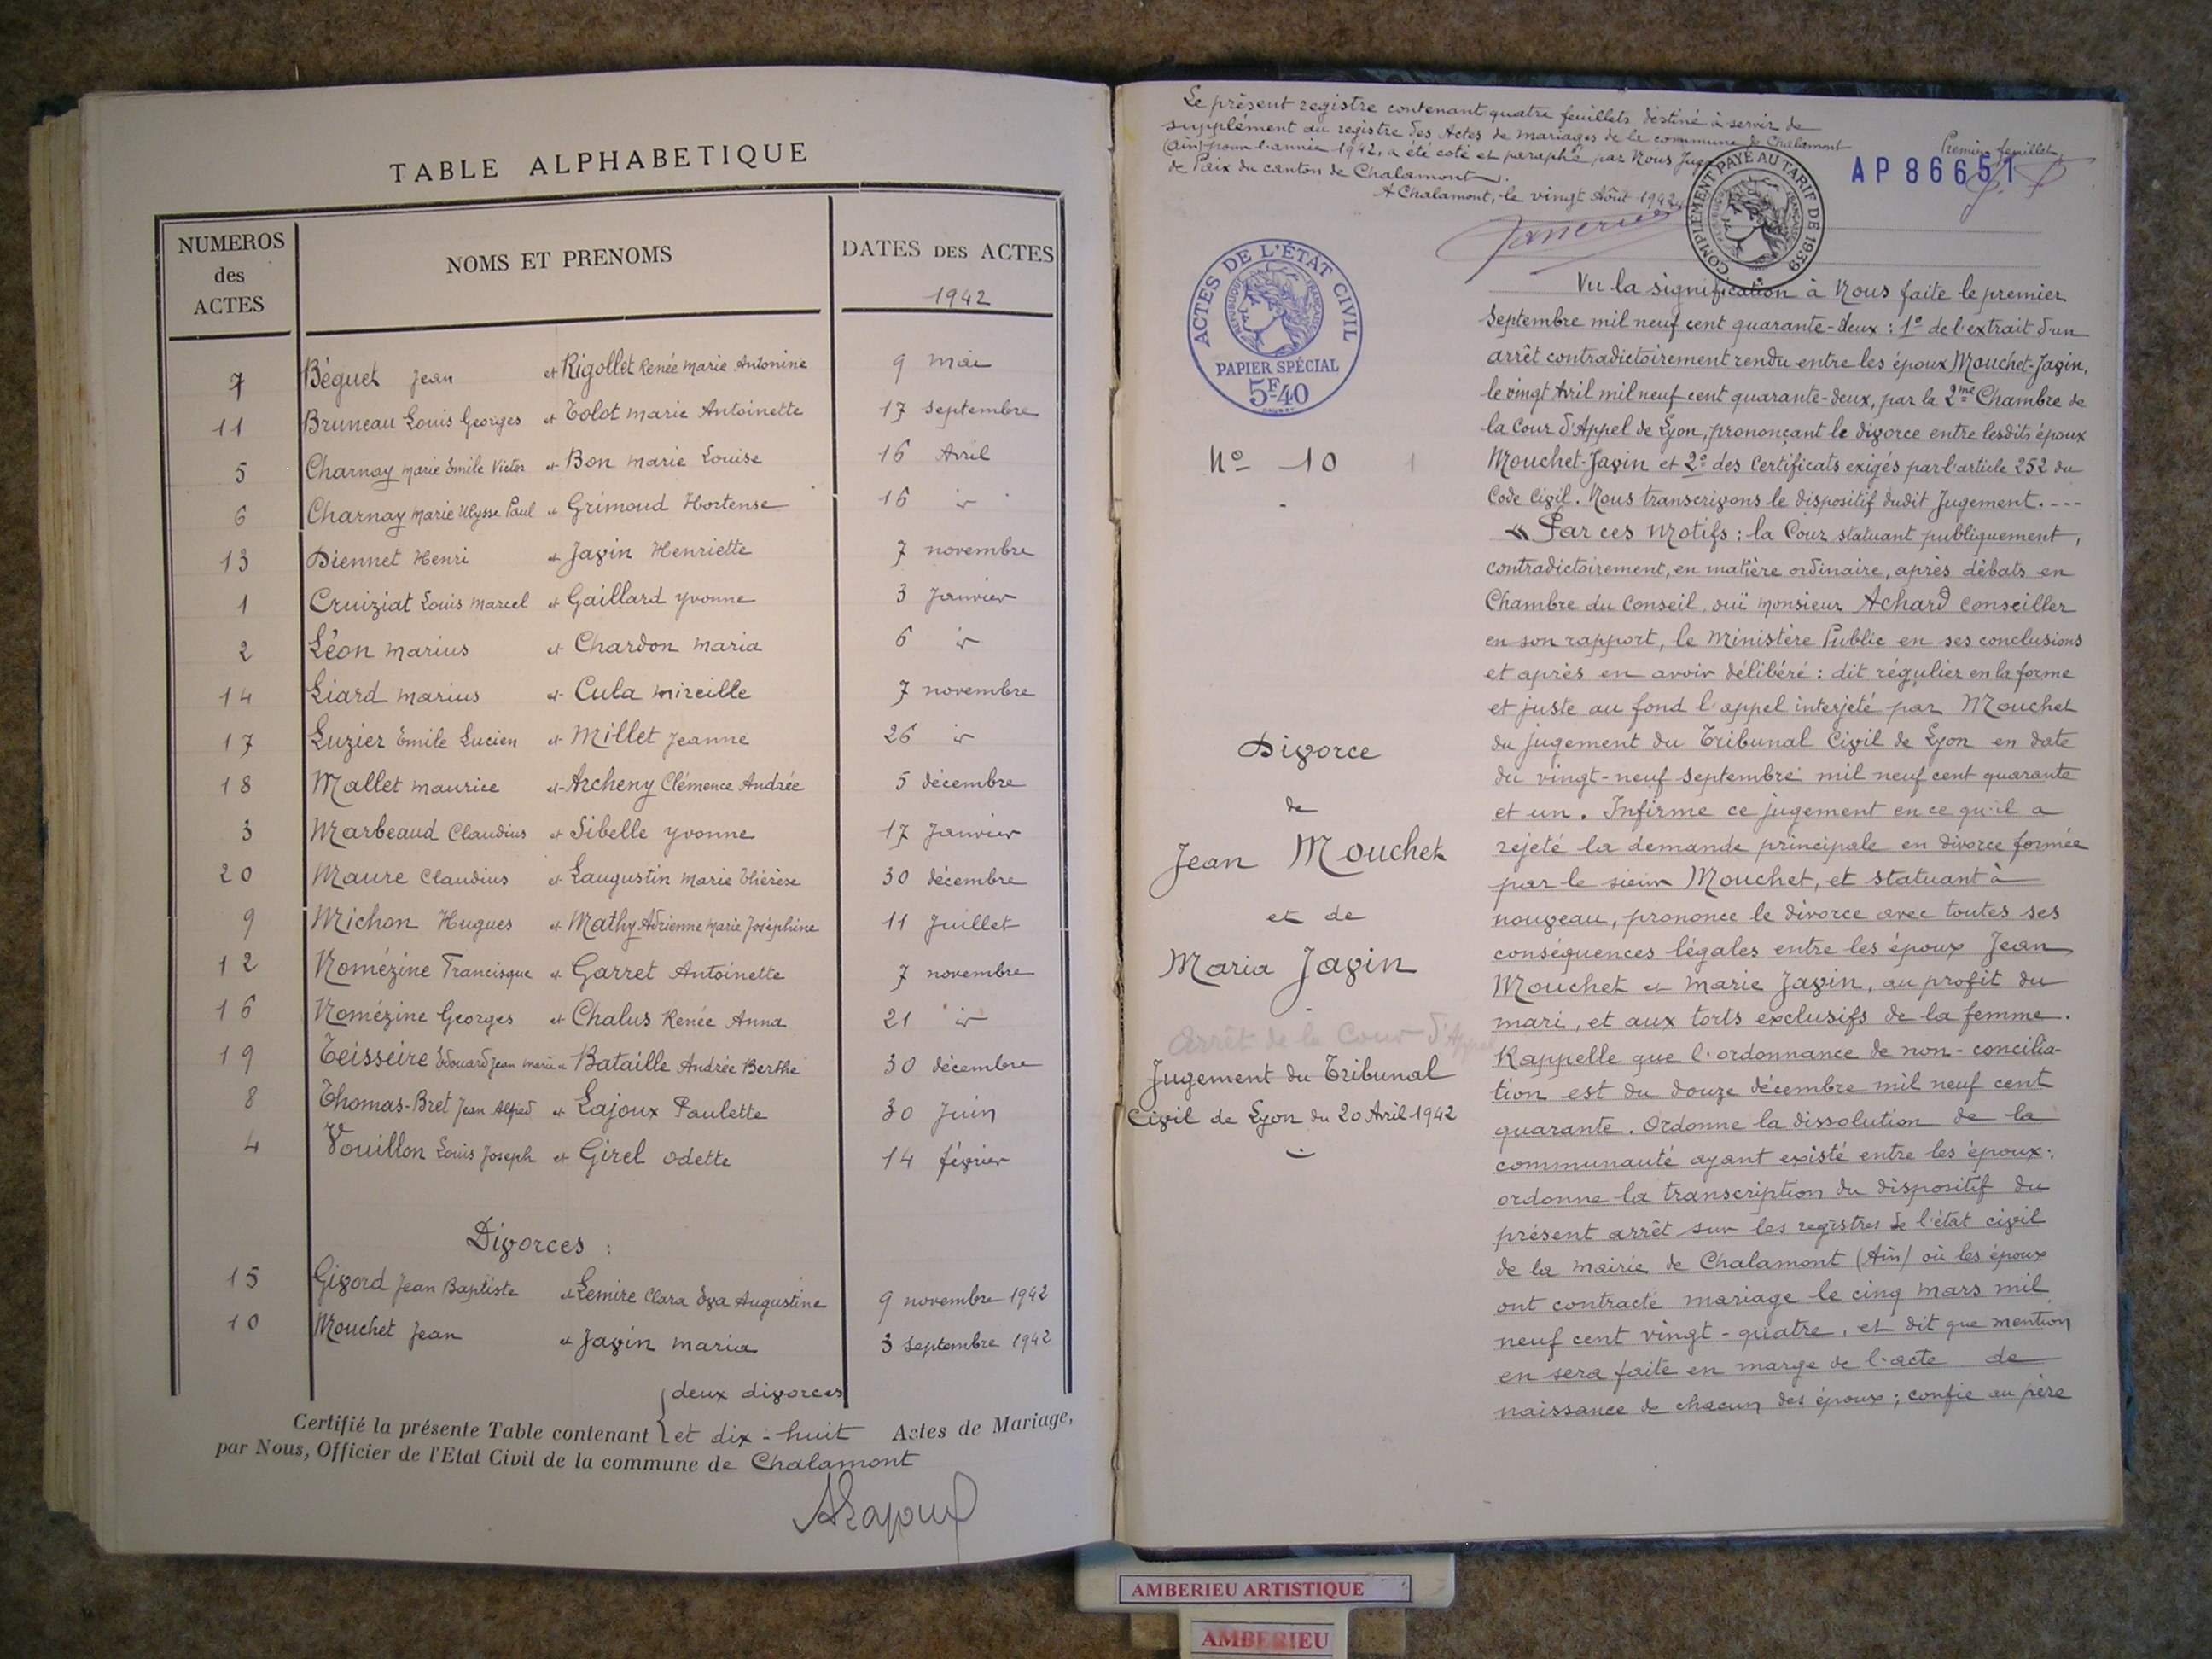 TABLE ALPHABETIQUE
NUMEROS des ACTES
NOMS ET PRENOMS
DATES DES ACTES
1942
7 Béguet Jean et Rigollet Renée Marie Antonine 9 mai
11 Bruneau Louis Georges et Tolot Marie Antoinette 17 septembre
5 Charnay Marie Emile Victor et Bon Marie Louise 16 Avril
6 Charnay Marie Ulysse Paul et Grimoud Hortense 16 ir
13 Diennet Henri et Javin Henriette 7 novembre
1 Cruiziat Louis Marcel et Gaillard Yvonne 3 Janvier
2 Léon Marius et Chardon Maria 6 ir
14 Liard Marius et Cula Mireille 7 novembre
17 Luzier Emile Lucien et Millet Jeanne 26 ir
18 Mallet Maurice et Archeny Clémence Andrée 5 décembre
3 Marbeaud Claudius et Sibelle Yvonne 17 Janvier
20 Maure Claudius et Laugustin Marie Thérèse 30 décembre
9 Michon Hugues et Mathy Adrienne Marie Joséphine 11 Juillet
12 Nomézine Francisque et Garret Antoinette 7 novembre
16 Nomézine Georges et Chalus Renée Anna 21 ir
19 Teisseire Edouard Jean Marie et Bataille Andrée Berthe 30 décembre
8 Thomas-Bret Jean Alfred et Lajoux Paulette 30 Juin
4 Vouillon Louis Joseph et Girel Odette 14 février
Divorces :
15 Givord Jean Baptiste et Lemire Clara Eva Augustine 9 novembre 1942
10 Mouchet Jean et Javin Maria 3 septembre 1942
deux divorces
Certifié la présente Table contenant et dix-huit Actes de Mariage,
par Nous, Officier de l'Etat Civil de la commune de Chalamont
Le présent registre contenant quatre feuillets destiné à servir de
supplément au registre des Actes de mariages de la commune de Chalamont
(Ain) pour l'année 1942, a été coté et paraphé par Nous Juge
de Paix du canton de Chalamont.
A Chalamont, le vingt Août 1942.
Premier feuillet
AP 86651
COMPLÉMENT PAYÉ AU TARIF DE 1939
ACTES DE L'ÉTAT CIVIL
RÉPUBLIQUE FRANÇAISE
PAPIER SPÉCIAL
5F40
N° 10 1
Divorce
de
Jean Mouchet
et de
Maria Javin
Arrêt de la Cour d'Appel
Jugement du Tribunal
Civil de Lyon du 20 Avril 1942
Vu la signification à Nous faite le premier
Septembre mil neuf cent quarante-deux : 1° de l'extrait d'un
arrêt contradictoirement rendu entre les époux Mouchet-Javin,
le vingt Avril mil neuf cent quarante-deux, par la 2me Chambre de
la Cour d'Appel de Lyon, prononçant le divorce entre lesdits époux
Mouchet-Javin et 2° des Certificats exigés par l'article 252 du
Code Civil. Nous transcrivons le dispositif dudit Jugement. ---
« Par ces motifs : la Cour statuant publiquement,
contradictoirement, en matière ordinaire, après débats en
Chambre du Conseil, ouï Monsieur Achard Conseiller
en son rapport, le Ministère Public en ses conclusions
et après en avoir délibéré : dit régulier en la forme
et juste au fond l'appel interjeté par Mouchet
du jugement du Tribunal Civil de Lyon en date
du vingt-neuf septembre mil neuf cent quarante
et un. Infirme ce jugement en ce qu'il a
rejeté la demande principale en divorce formée
par le sieur Mouchet, et statuant à
nouveau, prononce le divorce avec toutes ses
conséquences légales entre les époux Jean
Mouchet et Marie Javin, au profit du
mari, et aux torts exclusifs de la femme.
Rappelle que l'ordonnance de non-concilia-
tion est du douze décembre mil neuf cent
quarante. Ordonne la dissolution de la
communauté ayant existé entre les époux :
ordonne la transcription du dispositif du
présent arrêt sur les registres de l'état civil
de la mairie de Chalamont (Ain) où les époux
ont contracté mariage le cinq mars mil
neuf cent vingt-quatre, et dit que mention
en sera faite en marge de l'acte de
naissance de chacun des époux ; confie au père
AMBERIEU ARTISTIQUE
AMBERIEU